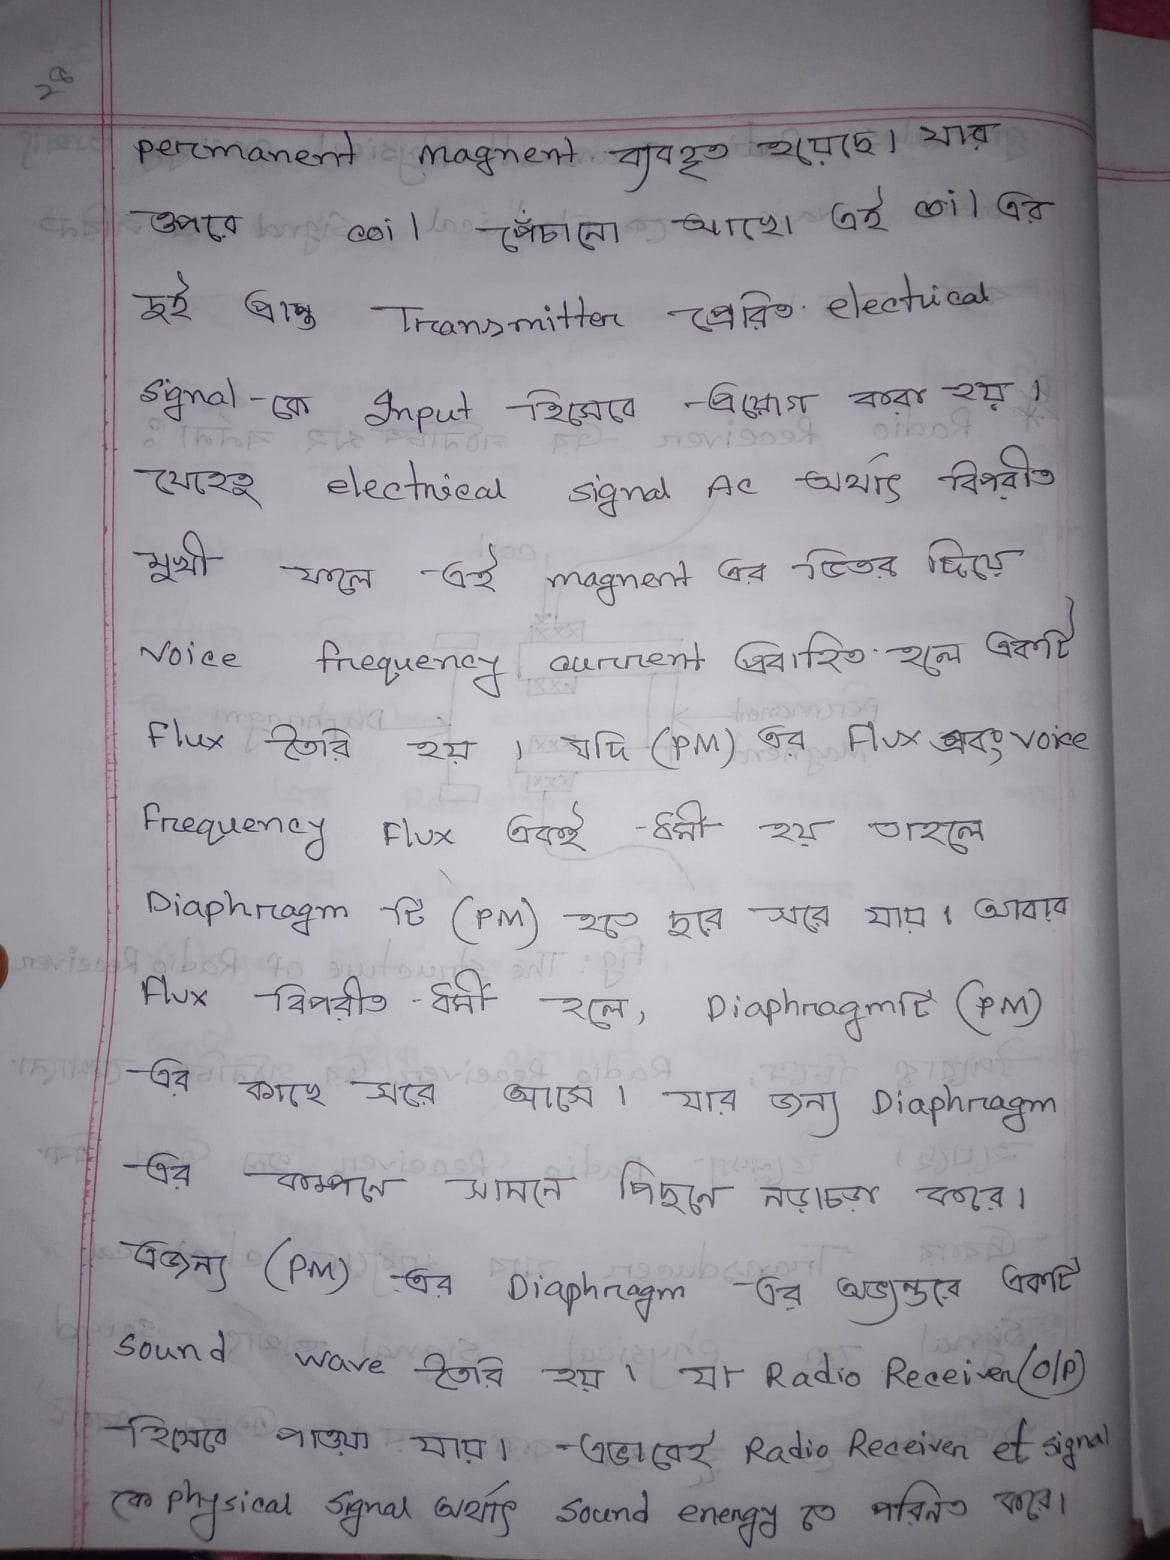 ২৫
permanent magnent ব্যবহৃত হয়েছে। যার
উপরে coil পেঁচানো আছে। এই coil এর
দুই প্রান্ত Transmitter প্রেরিত electrical
signal-কে Input হিসেবে প্রয়োগ করা হয়।
যেহেতু electrical signal AC অর্থাৎ বিপরীত
মুখী ফলে এই magnent এর ভিতর দিয়ে
voice frequency current প্রবাহিত হলে একটি
Flux তৈরি হয়। যদি (PM) এর Flux এবং voice
Frequency Flux একই ধর্মী হয় তাহলে
Diaphragm টি (PM) হতে দূরে সরে যায়। আবার
Flux বিপরীত ধর্মী হলে, Diaphragmটি (PM)
এর কাছে সরে আসে। যার জন্য Diaphragm
এর কম্পনে সামনে পিছনে নড়াচড়া করে।
এজন্য (PM) এর Diaphragm এর অভ্যন্তরে একটি
sound wave তৈরি হয়। যা Radio Receiver (O/P)
হিসেবে পাওয়া যায়। এভাবেই Radio Receiver et signal
কে physical signal অর্থাৎ sound energy তে পরিনত করে।